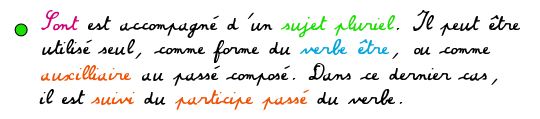 Sont est accompagné d'un sujet pluriel. Il peut être
utilisé seul, comme forme du verbe être, ou comme
auxilliaire au passé composé. Dans ce dernier cas,
il est suivi du participe passé du verbe.